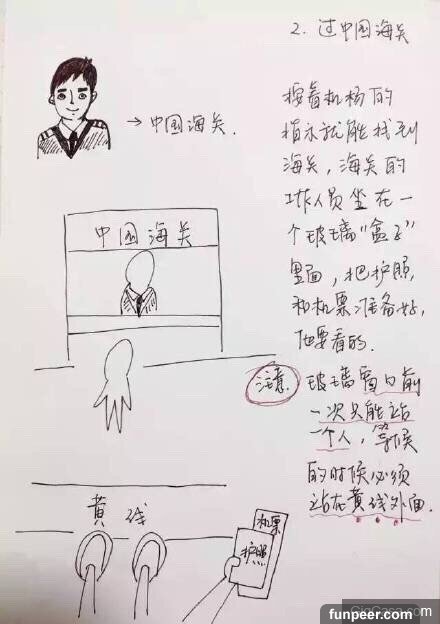 2. 过中国海关
→中国海关.
按着机场的
指示就能找到
海关,海关的
工作人员坐在一
个玻璃“盒子”
里面,把护照
和机票准备好,
他要看的.
中国海关
注意 玻璃窗口前
一次只能站
一个人,等候
的时候必须
站在黄线外面.
黄线
机票
护照
funpeer.com